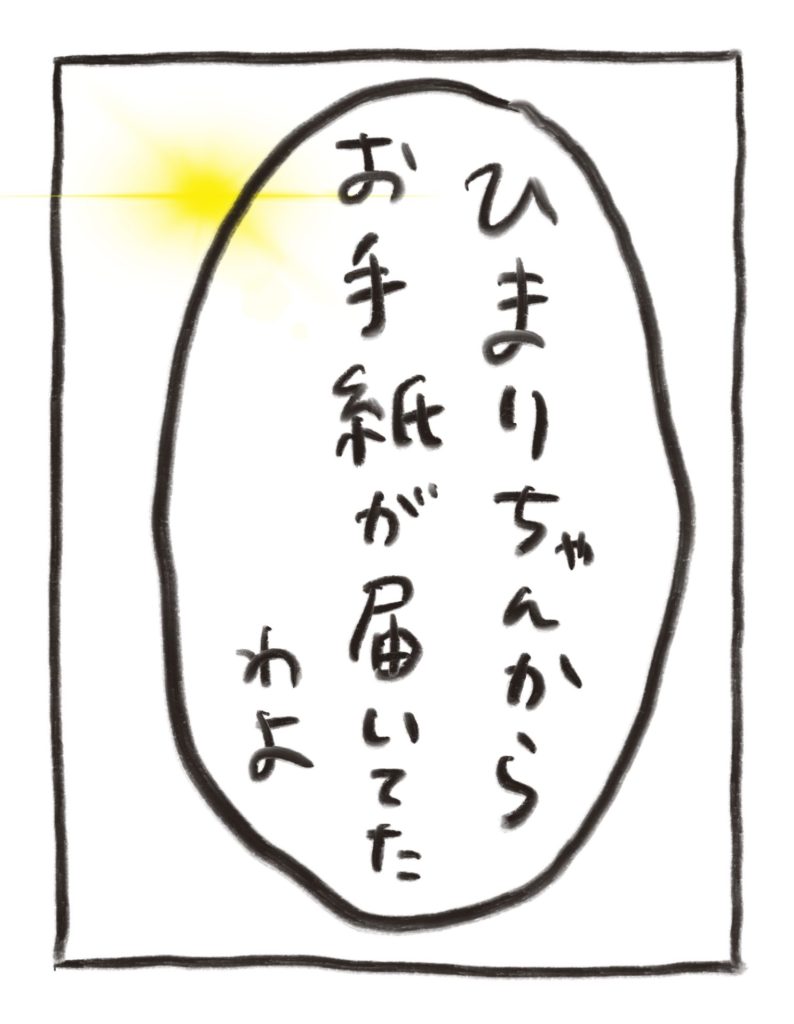 ひまりちゃんから
お手紙が届いてた
わよ